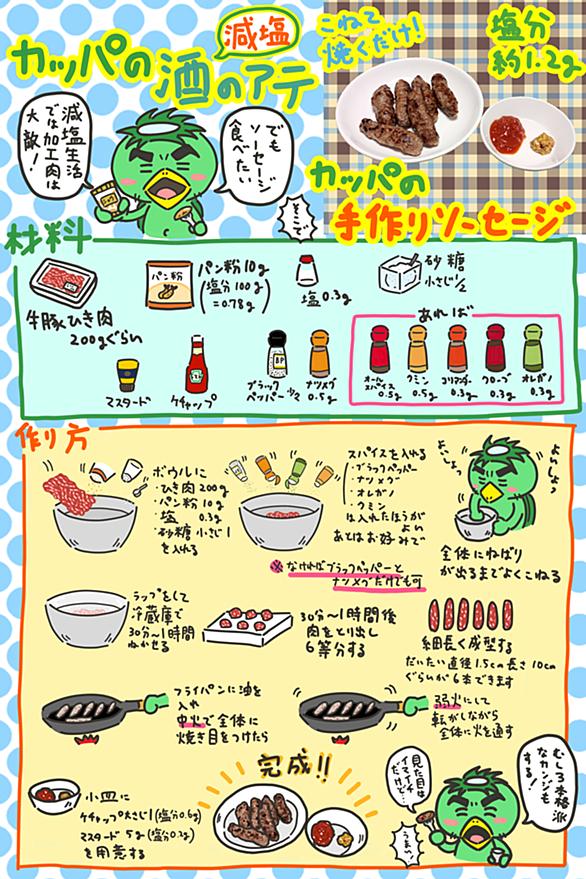 減塩
カッパの酒のアテ
こねて
焼くだけ!
塩分
約1.2g
減塩生活
では加工肉は
大敵!
でも
ソーセージ
食べたい
そこで
カッパの
手作りソーセージ
材料
牛豚ひき肉
200gぐらい
パン粉
パン粉10g
(塩分100g
=0.78g)
塩0.3g
砂糖
小さじ1/2
マスタード
ケチャップ
ブラック
ペッパー
ナツメグ
0.5g
あれば
オール
スパイス
0.5g
クミン
0.5g
コリアンダー
0.3g
クローブ
0.3g
オレガノ
0.3g
作り方
ボウルに
・ひき肉200g
・パン粉10g
・塩 0.3g
・砂糖小さじ1
を入れる
スパイスを入れる
・ブラックペッパー
・ナツメグ
・オレガノ
・クミン
は入れたほうが
よい
あとはお好みで
※なければブラックペッパーと
ナツメグだけでも可
よいしょっ
よいしょっ
全体にねばり
が出るまでよくこねる
ラップをして
冷蔵庫で
30分〜1時間
ねかせる
30分〜1時間後
肉をとり出し
6等分する
細長く成型する
だいたい直径1.5cm長さ10cm
ぐらいが6本できます
フライパンに油を
入れ
中火で全体に
焼き目をつけたら
弱火にして
転がしながら
全体に火を通す
小皿に
ケチャップ大さじ1(塩分0.6g)
マスタード5g(塩分0.2g)
を用意する
完成!!
見た目は
イマイチ
だけど…
うまい!
むしろ本格派
なカンジも
する!